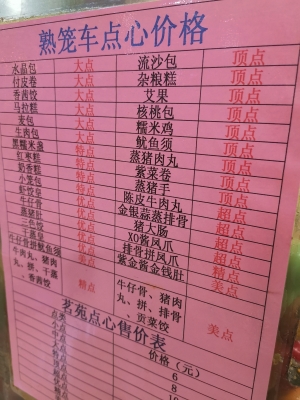 熟笼车点心价格
水晶包 大点 流沙包 顶点
付皮卷 大点 杂粮糕 顶点
香茜饺 大点 艾果 顶点
马拉糕 大点 核桃包 顶点
麦包 大点 糯米鸡 顶点
生肉包 鱿鱼须 顶点
黑糯米 蒸猪肉丸 顶点
红枣糕 特点 紫菜卷 顶点
奶香糕 特点 蒸猪手 顶点
小笼包 特点 陈皮牛肉丸 超点
虾饺皇 优点 金银蒜蒸排骨 超点
牛仔骨 优点 猪大肠 超点
蒸猪肚 优点 XO酱凤爪 超点
优点 排骨拼凤爪 精点
干蒸皇 优点 紫金酱金钱肚 美点
牛仔骨拼鱿鱼须
牛肉丸、猪肉丸、拼、干蒸、香茜饺 精点 牛仔骨、猪肉丸、拼、排骨、贡菜饺 美点
茗苑点心售价表
价格(元)
6
8